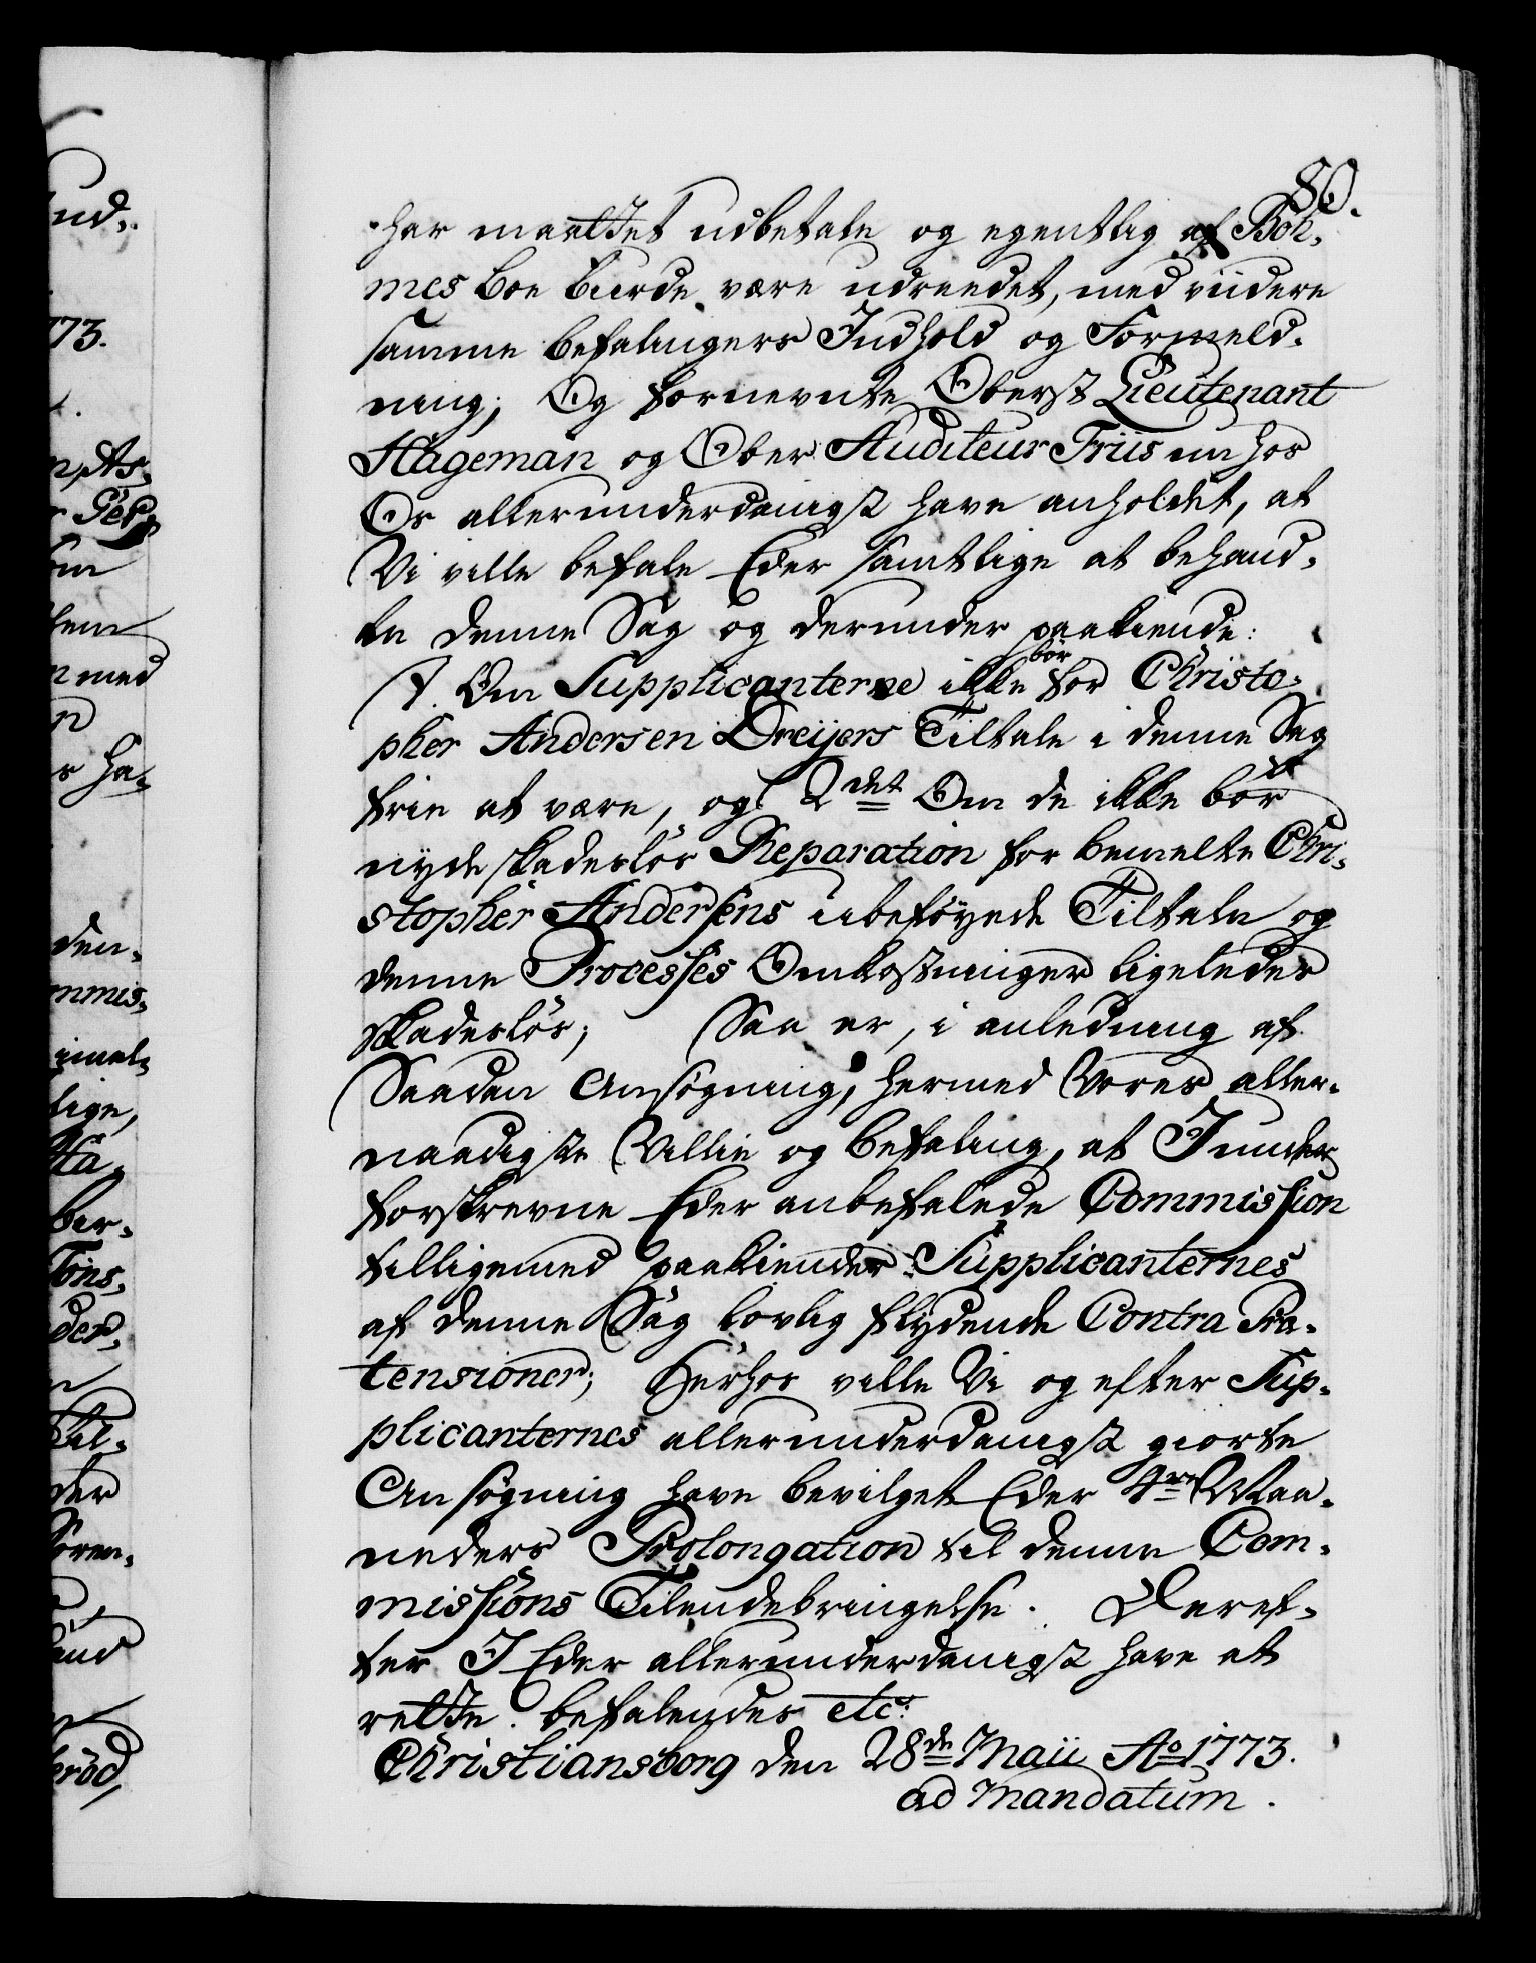 80.
har maattet udbetale og egentlig af Böh-
mes Boe burde være udreedet, med viidere
samme befalingers Indhold og Formeld-
ning; Og fornevnte Oberst Lieutenant
Hageman og Ober Auditeur Friis nu hos
Os allerunderdanigst have anholdet, at
Vi ville befale Eder samtlige at behand-
le denne Sag og derunder paakiende:
1. Om Supplicanterne ikke bör for Christo-
pher Andersen Dreijers Tiltale i denne Sag
frie at være, og 2det Om de ikke bör
nyde skadeslös Reparation for bemelte Chri-
stopher Andersens ubeföyede Tiltale og
denne Processes Omkostninger ligeledes
skadeslös; Saa er, i anledning af
Saadan Ansögning, hermed Vores aller-
naadigste Villie og befaling, at I under
forskrevne Eder anbefalede Commission
tilligemed paakiender Supplicanternes
af denne Sag lovlig flydende Contra Præ-
tensioner; Herhos ville Vi og efter Sup-
plicanternes allerunderdanigst giorte
Ansögning have bevilget Eder 4re Maa-
neders Prolongation til denne Com-
missions Tilendebringelse. Deref-
ter I Eder allerunderdanigst have at
rette. befalendes etc:
Christiansborg den 28de Maii Ao 1773.
ad Mandatum.
nd-
73.
med
ha-
den-
mmis-
lige,
ber-
der